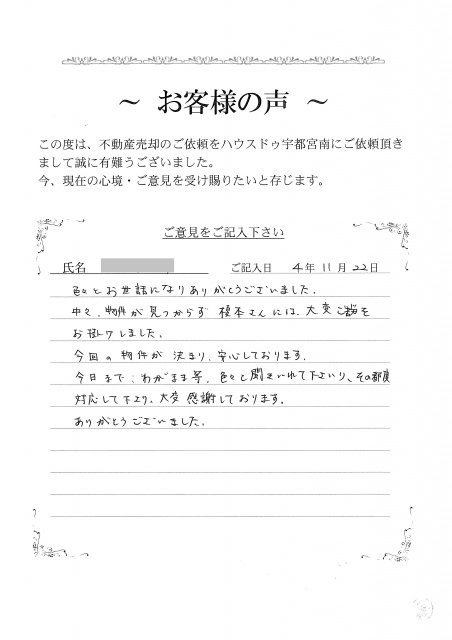 ～ お客様の声 ～
この度は、不動産売却のご依頼をハウスドゥ宇都宮南にご依頼頂き
まして誠に有難うございました。
今、現在の心境・ご意見を受け賜りたいと存じます。
ご意見をご記入下さい
氏名 ご記入日 4年11月22日
色々とお世話になりありがとうございました。
中々、物件が見つからず 榎本さんには、大変ご迷惑を
お掛けしました。
今回の物件が決まり、安心しております。
今日まで、わがまま等、色々と聞きいれて下さいり、その都度
対応して下さり、大変感謝しております。
ありがとうございました。